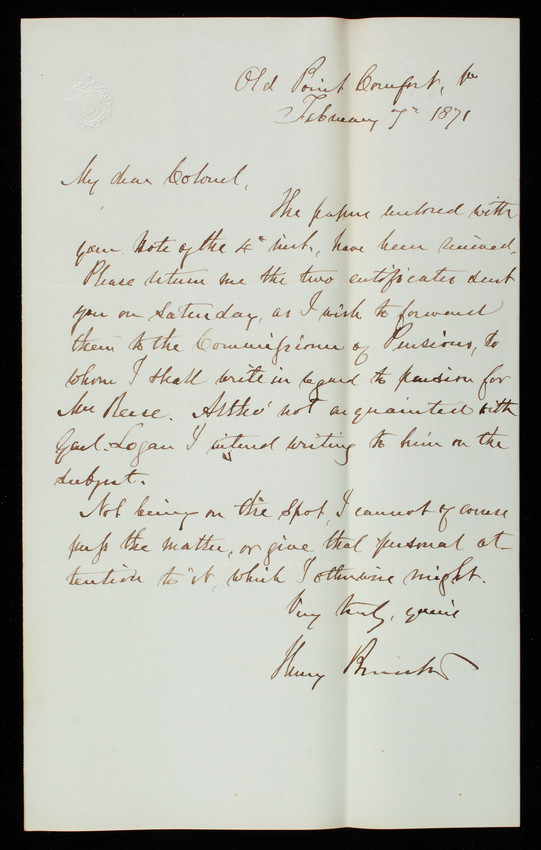 Old Point Comfort, Va
February 7th 1871
My dear Colonel,
The papers enclosed with
your note of the 4th inst., have been received.
Please return me the two certificates sent
you on Saturday, as I wish to forward
them to the Commissioner of Pensions, to
whom I shall write in regard to pension for
Mrs Reese. Altho' not acquainted with
Genl. Logan I intend writing to him on the
subject.
Not being on the spot, I cannot of course
push the matter, or give that personal at-
tention to it, which I otherwise might.
Very truly, yours
Henry